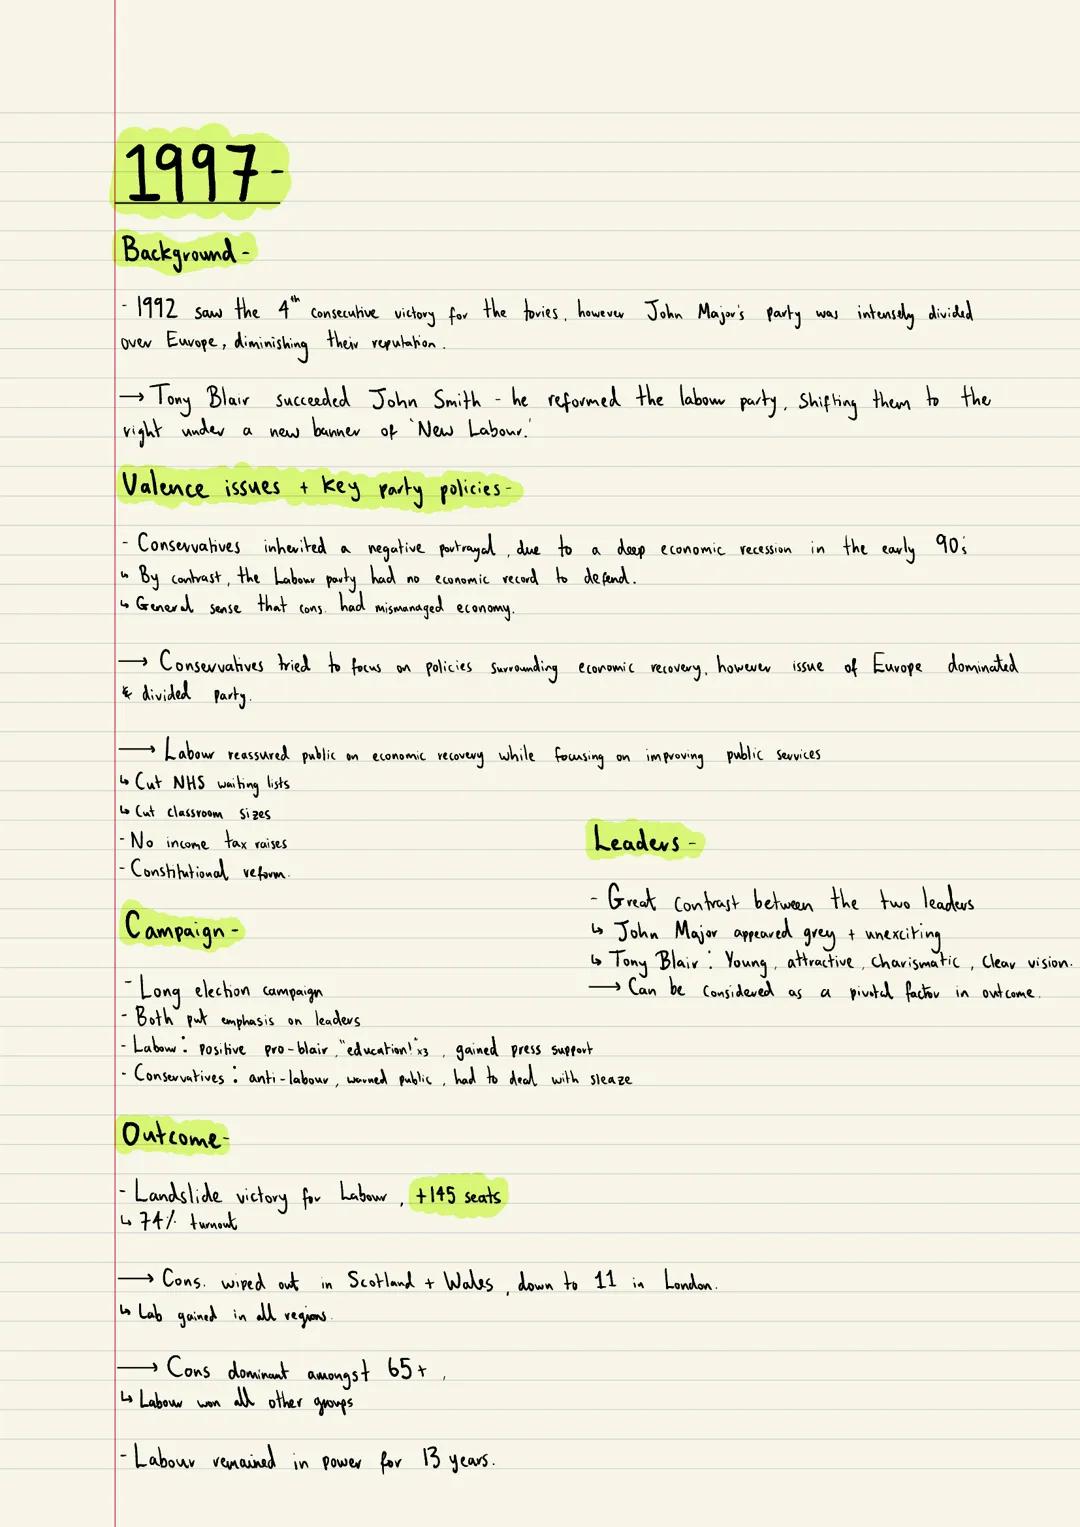 1997-
Background -
- 1992 saw the 4th consecutive victory for the tories, however John Major's party was intensely divided
over Europe, diminishing their reputation.
→ Tony Blair succeeded John Smith - he reformed the labour party, Shifting them to the
right under a new banner of 'New Labour.'
Valence issues + key party policies -
- Conservatives inherited a negative portrayal, due to a deep economic recession in the early 90s
↳ By contrast, the Labour party had no economic record to defend.
↳ General sense that cons. had mismanaged economy.
→ Conservatives tried to focus on policies surrounding economic recovery, however issue of Europe dominated
& divided party.
→ Labour reassured public on economic recovery while focusing on improving public services
↳ Cut NHS waiting lists
↳ Cut classroom sizes
- No income tax raises
- Constitutional reform.
Leaders -
- Great contrast between the two leaders
↳ John Major appeared grey + unexciting
↳ Tony Blair: Young, attractive, charismatic, clear vision.
→ Can be considered as a pivotal factor in outcome.
Campaign -
- Long election campaign
- Both put emphasis on leaders
- Labour: positive pro-blair, "education!"x3, gained press support
- Conservatives: anti-labour, warned public, had to deal with sleaze
Outcome-
- Landslide victory for Labour, +145 seats
↳ 74% turnout
→ Cons. wiped out in Scotland + Wales, down to 11 in London.
↳ Lab gained in all regions.
→ Cons dominant amongst 65+,
↳ Labour won all other groups
- Labour remained in power for 13 years.